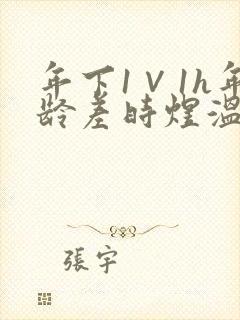 年下1V1h年
龄差时煜温
張宇